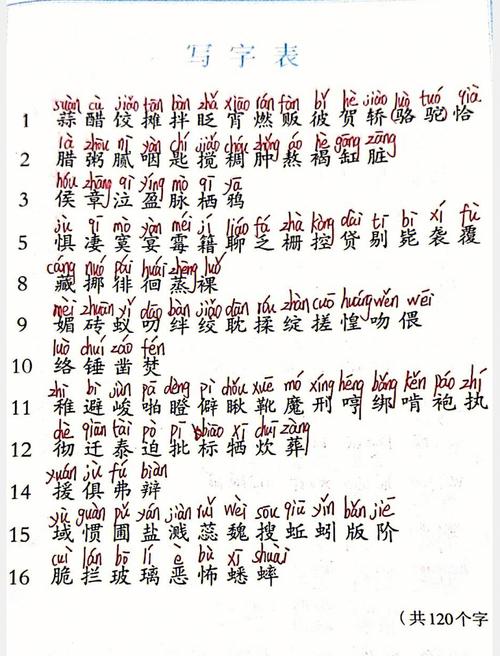 写字表
suàn cù jiǎo tān bàn zhǎ xiāo rán fàn bǐ hè jiào luò tuó qià
1 蒜 醋 饺 摊 拌 眨 宵 燃 贩 彼 贺 轿(骆 驼)恰
là zhōu nì yàn chí jiǎo chóu zhǒng áo hè gāng zāng
2 腊 粥 腻 咽 匙 搅 稠 肿 熬 褐 缸 脏
hóu zhāng qì yíng mò qī yā
3 侯 章 泣 盈 脉 栖 鸦
jù qī mò yàn méi jí liáo fá zhà kòng dài tī bì xí fù
5 惧 凄 寞 宴 霉 籍 聊 乏 栅 控 贷 剔 毙 袭 覆
cáng nuó pái huái zhēng luǒ
8 藏 挪 徘 徊 蒸 裸
mèi zhuān yǐ dāo bàn jiǎo dān róu zhàn cuō huáng wěn wēi
9 媚 砖 蚁 叨 绊 绞 耽 揉 绽 搓 惶 吻 偎
luò chuí záo fén
10 络 锤 凿 焚
zhì bì jùn pā dèng pì chǒu xuē mó xíng hēng bǎng kěn páo zhí
11 稚 避 峻 啪 瞪 僻 瞅 靴 魔 刑 哼 绑 啃 袍 执
chè qiān tài pò pī biāo xī chuī zàng
12 彻 迁 泰 迫 批 标 牺 炊 葬
yuán jù fú biàn
14 援 俱 弗 辩
yù guàn pǔ yán jiàn ruǐ wèi sōu qiū yǐn bǎn jiē
15 域 惯 圃 盐 溅 蕊 魏 搜 蚯 蚓 版 阶
cuì lán bō lí è bù xī shuài
16 脆 拦 玻 璃 恶 怖 蟋 蟀
(共120个字